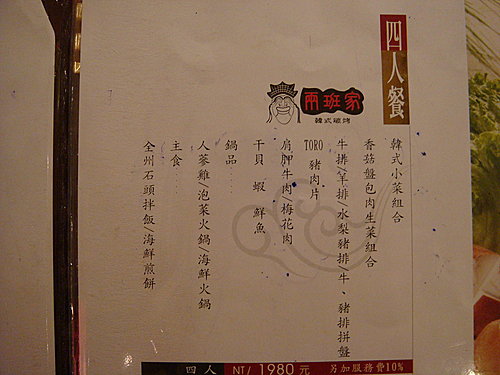 四人餐
兩班家
韓式碳烤
韓式小菜組合
香菇盤包肉生菜組合
牛排/羊排/水梨豬排/牛、豬排拼盤
TORO 豬肉片
肩胛牛肉/梅花肉
干貝 蝦 鮮魚
鍋品
人蔘雞/泡菜火鍋/海鮮火鍋
主食
全州石頭拌飯/海鮮煎餅
四人 NT/ 1980元 另加服務費10%